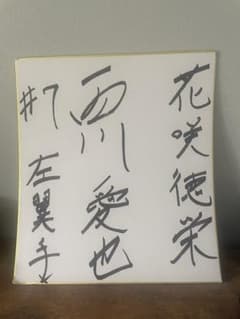 花咲徳栄
西川愛也
#7 左翼手